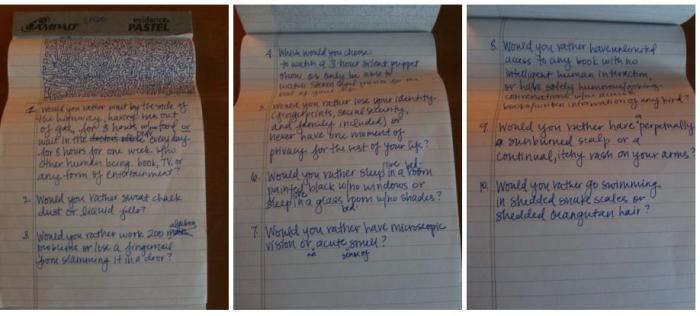 AMPAD
evidence
PASTEL
1. Would you rather wait by the side of
the highway, having run out
of gas, for 8 hours w/no food or
wait in the doctors office everyday
for 8 hours for one week w/no
other human being, book, TV, or
any form of entertainment?
2. Would you rather sweat chalk
dust or liquid jello?
3. Would you rather work 200 math algebra
problems or lose a fingernail
from slamming it in a door?
4. What would you choose:
to watch a 3 hour silent puppet
show or only be able to
watch Steven
rest of your
5. Would you rather lose your identity
(fingerprints, social security,
and family included) or
never have one moment of
privacy for the rest of your life?
6. Would you rather sleep in a room
painted black w/no windows or
sleep in a glass room w/no shades?
7. Would you rather have microscopic
vision or an acute sense of smell?
8. Would you rather have unlimited
access to any book with no
intelligent human interaction,
or have solely humorous/joking
conversations w/no access to
books/written information of any kind?
9. Would you rather have a perpetually
sunburned scalp or a
continual, itchy rash on your arms?
10. Would you rather go swimming
in shedded snake scales or
shedded orangutan hair?